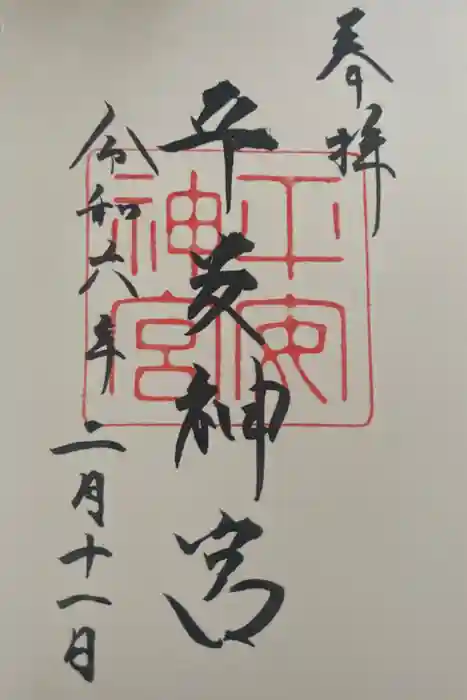 奉拝
平安神宮
令和六年二月十一日
平安
神宮